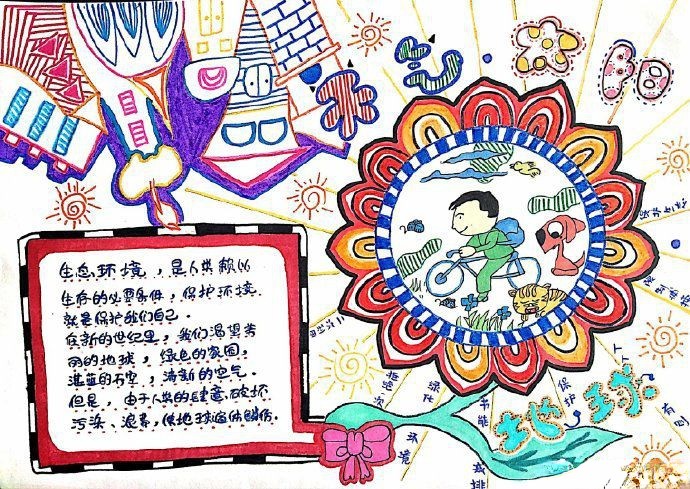 生态环境，是人类赖以
生存的必要条件，保护环境
就是保护我们自己．
在新的世纪里，我们渴望美
丽的地球，绿色的家园，
湛蓝的天空，清新的空气．
但是，由于人类的肆意破坏
污染、浪费，使地球遍体鳞伤．
地球
保护
环境
节能
减排